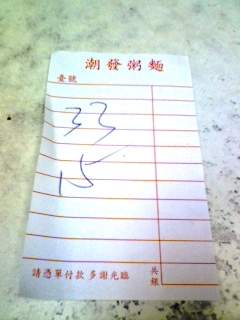 潮發粥麵
臺號
33
15
請憑單付款 多謝光臨
共銀